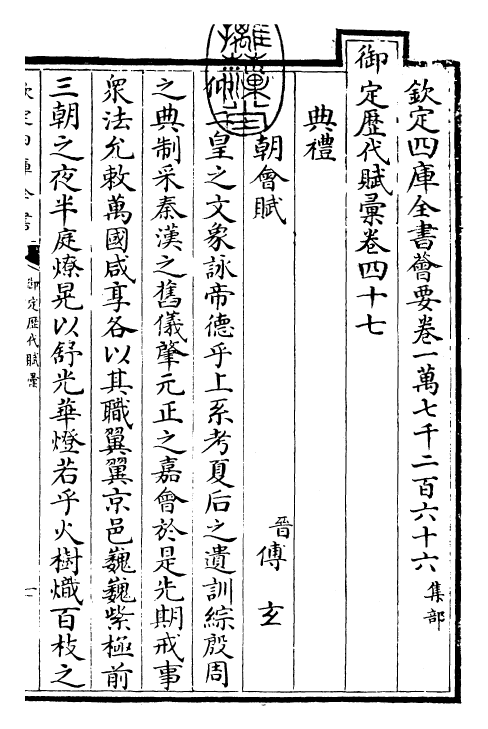 欽定四庫全書薈要卷一萬七千二百六十六 集部
御定歴代賦彙卷四十七
典禮
朝會賦 晉 傅玄
仰皇之文象詠帝德乎上系考夏后之遺訓綜殷周
之典制采秦漢之舊儀肇元正之嘉會於是先期戒事
衆法允敕萬國咸享各以其職翼翼京邑巍巍紫極前
三朝之夜半庭燎晃以舒光華燈若乎火樹熾百枝之
御定歴代賦彙